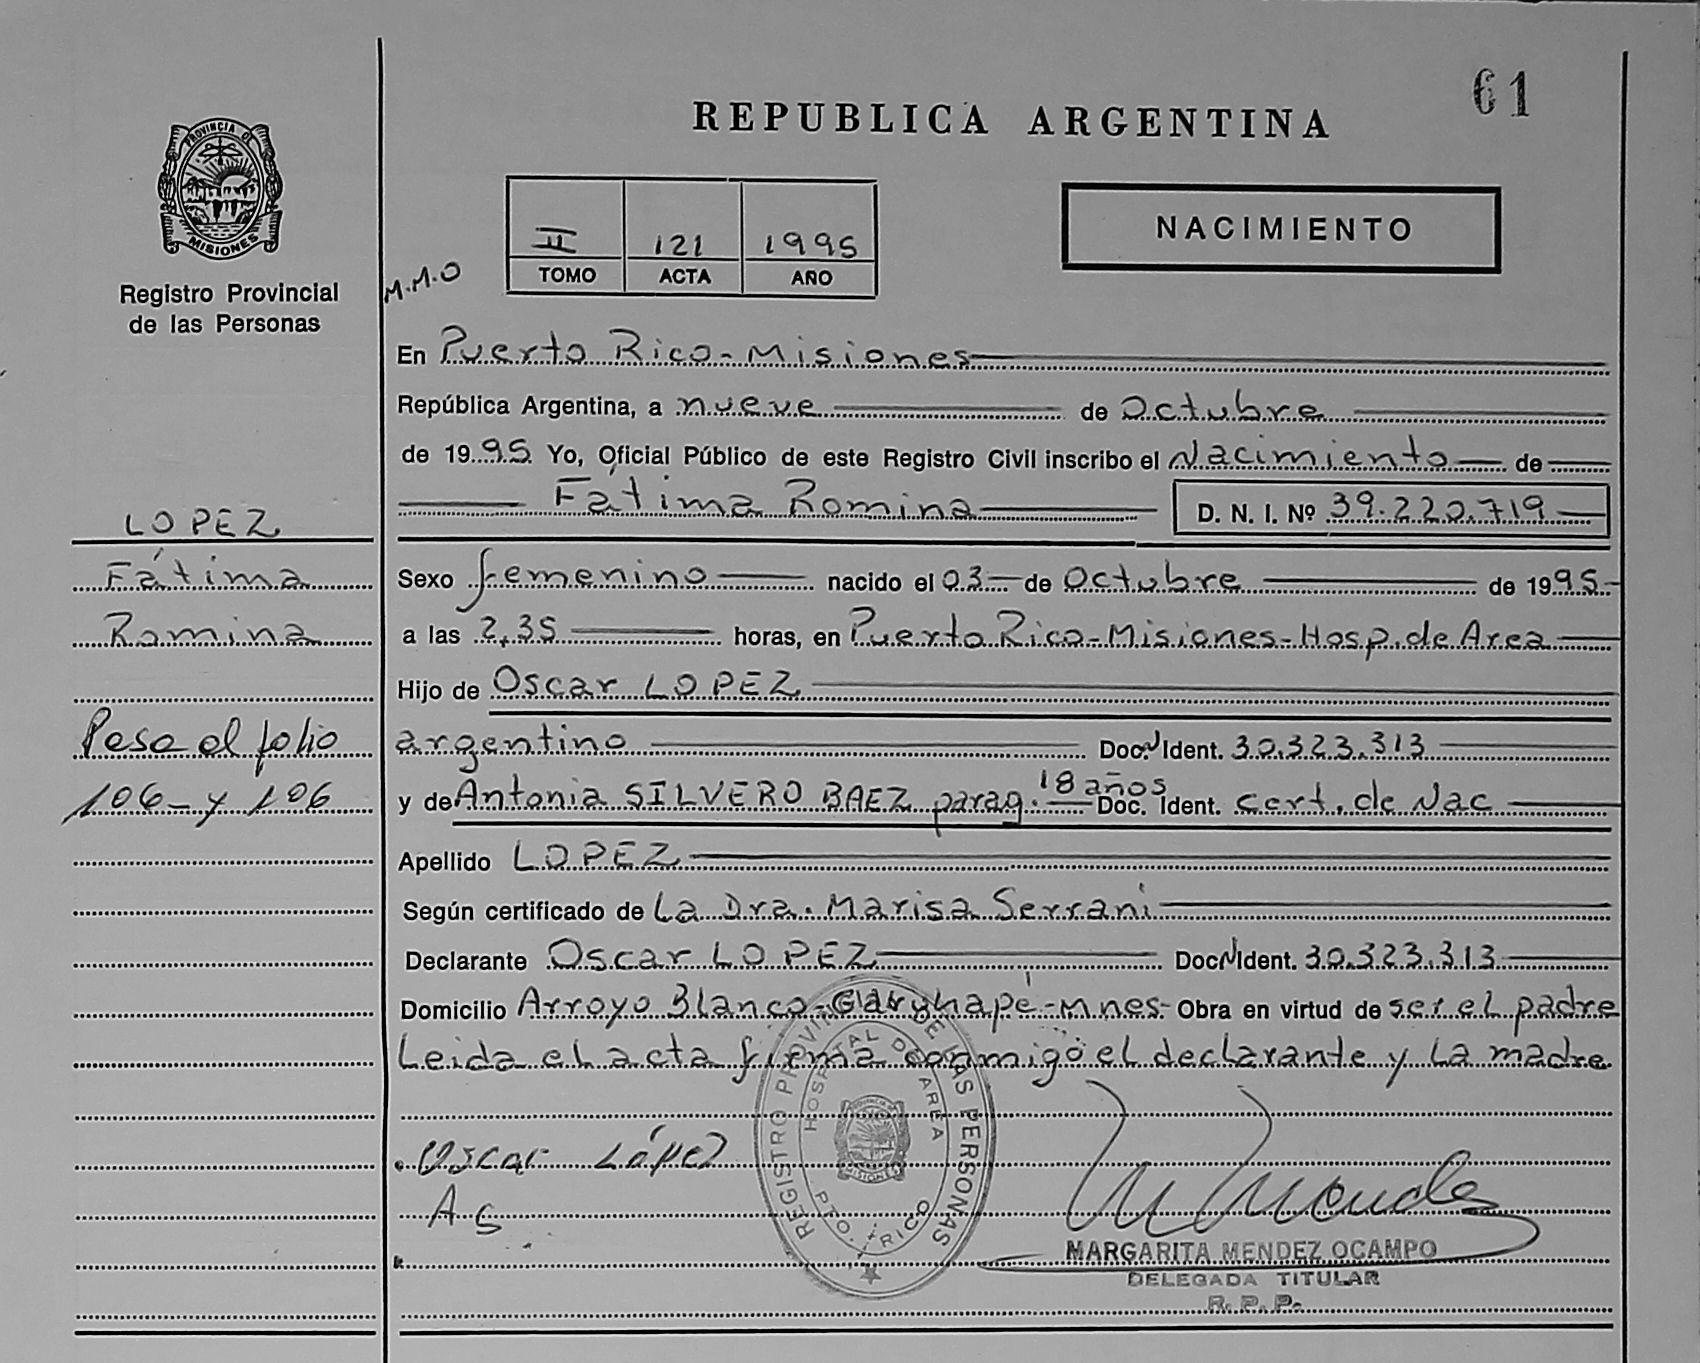 61
REPUBLICA ARGENTINA
PROVINCIA DE
MISIONES
Registro Provincial
de las Personas
II 121 1995
TOMO ACTA AÑO
NACIMIENTO
M.M.O
En Puerto Rico-Misiones
República Argentina, a nueve de Octubre
de 1995 Yo, Oficial Público de este Registro Civil inscribo el Nacimiento de
Fátima Romina D. N. I. Nº 39.220.719
LOPEZ
Fátima
Romina
Pase al folio
106 y 106
Sexo femenino nacido el 03 de Octubre de 1995
a las 2,35 horas, en Puerto Rico-Misiones-Hosp. de Area
Hijo de Oscar LOPEZ
argentino Doc. Ident. 30.323.313
y de Antonia SILVERO BAEZ parag. 18 años Doc. Ident. cert. de Nac
Apellido LOPEZ
Según certificado de La Dra. Marisa Serrani
Declarante Oscar LOPEZ Doc. Ident. 30.323.313
Domicilio Arroyo Blanco-Garuhapé-Mnes- Obra en virtud de ser el padre
Leida el acta firma conmigo el declarante y la madre
Oscar López
A S
REGISTRO PROVINCIAL DE LAS PERSONAS
HOSPITAL DE AREA
PTO. RICO
MARGARITA MENDEZ OCAMPO
DELEGADA TITULAR
R. P. P.